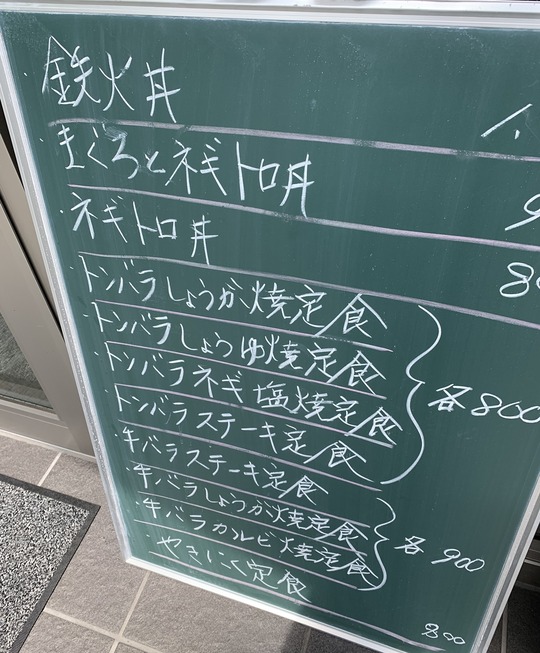 鉄火丼
まぐろとネギトロ丼
ネギトロ丼
トンバラしょうが焼定食
トンバラしょうゆ焼定食
トンバラネギ塩焼定食
トンバラステーキ定食
各800
牛バラステーキ定食
牛バラしょうが焼定食
牛バラカルビ焼定食
各900
やきにく定食
800